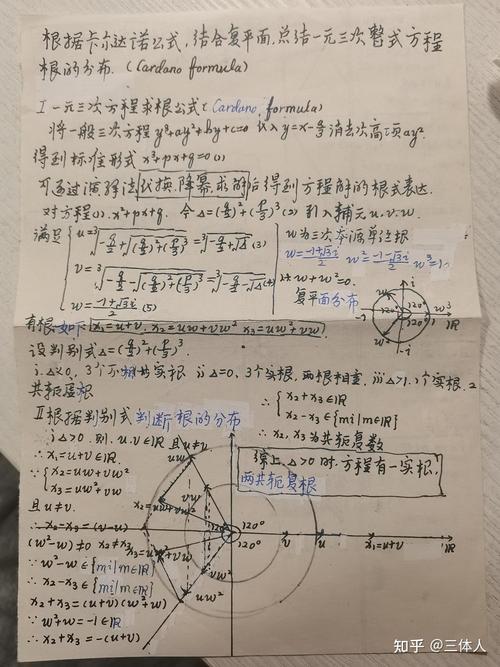 根据卡尔达诺公式,结合复平面,总结一元三次整式方程
根的分布.(Cardano formula)
I 一元三次方程求根公式(Cardano formula)
将一般三次方程 y³+ay²+by+c=0 以 y=x-a/3 消去次高项 ay²
得到标准形式 x³+px+q=0 (1)
可通过演绎法代换.降幂.求的后得到方程解的根式表达.
对方程(1). x³+px+q. 令Δ=(q/2)²+(p/3)³ (2) 引入辅元 u.v.w.
满足 { u=³√(-q/2+√((q/2)²+(p/3)³))=³√(-q/2+√Δ) (3)
v=³√(-q/2-√((q/2)²+(p/3)³))=³√(-q/2-√Δ) (4)
w=(-1+√3i)/2 (5)
w为三次本源单位根
w=(-1+√3i)/2 w²=(-1-√3i)/2 w³=1
1+w+w²=0.
复平面分布
i
w
120°
120°
w³
-1
1
IR
w²
-i
有根如下 x₁=u+v, x₂=uw+vw² x₃=uw²+vw.
设判别式Δ=(q/2)²+(p/3)³
i Δ<0, 3个不相等实根 ii Δ=0, 3个实根, 两根相重, iii Δ>1, 1个实根. 2
共轭虚根
II 根据判别式判断根的分布
i Δ>0. 则. u.v∈IR 且 u≠v
∴ x₁=u+v∈IR.
∵ { x₂=uw+vw²
x₃=uw²+vw
且 u≠v.
∴ x₂-x₃=(v-u)
(w²-w)≠0 x₂≠x₃
∵ w²-w∈{mi|m∈IR}
∴ x₂-x₃∈{mi|m∈IR}
x₂+x₃=(u+v)(w²+w)
∵ w²+w=-1∈IR
∴ x₂+x₃=-(u+v)
∴ { x₂+x₃∈IR
x₂-x₃∈{mi|m∈IR}
∴ x₂, x₃为共轭复数
综上, Δ>0时. 方程有一实根,
两共轭复根
uw
vw
x₂=uw+vw²
120°
120°
120°
x₃=uw²+vw
vw²
uw²
v
u
x₁=u+v
IR
知乎 @三体人